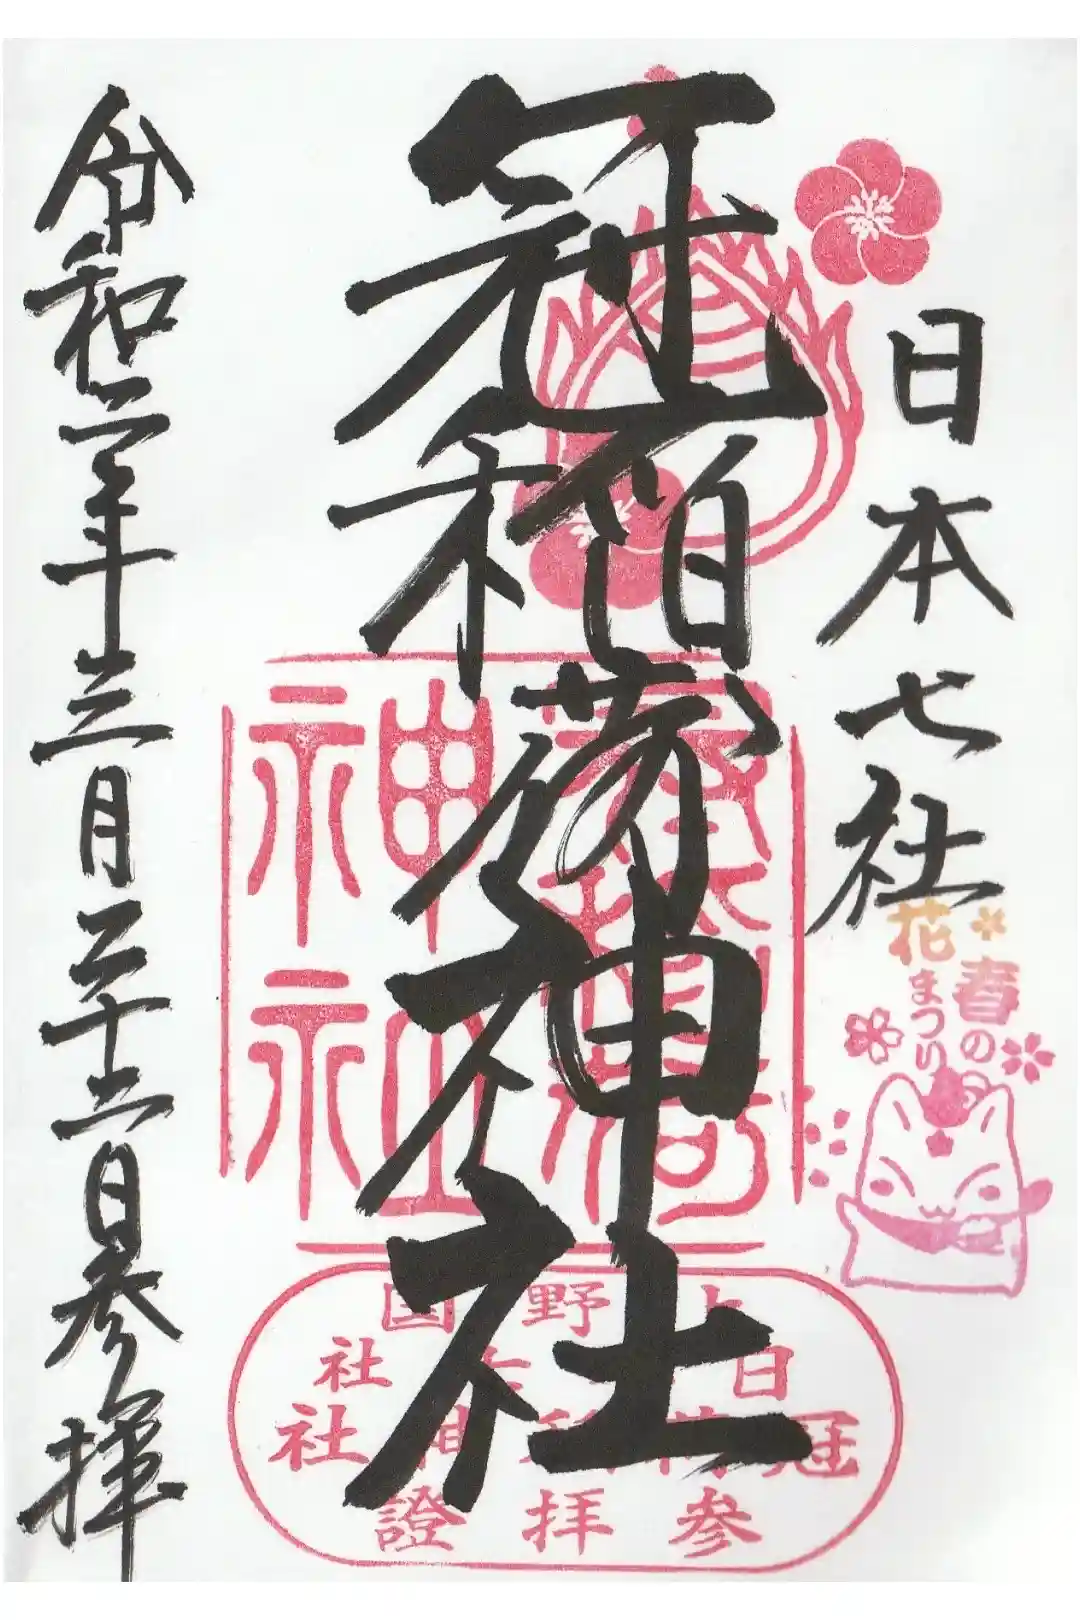 日本七社
冠稲荷神社
令和二年三月二十二日参拝
春の
花まつり
神社
上野国
日 七社
冠稲荷神社
参拝證